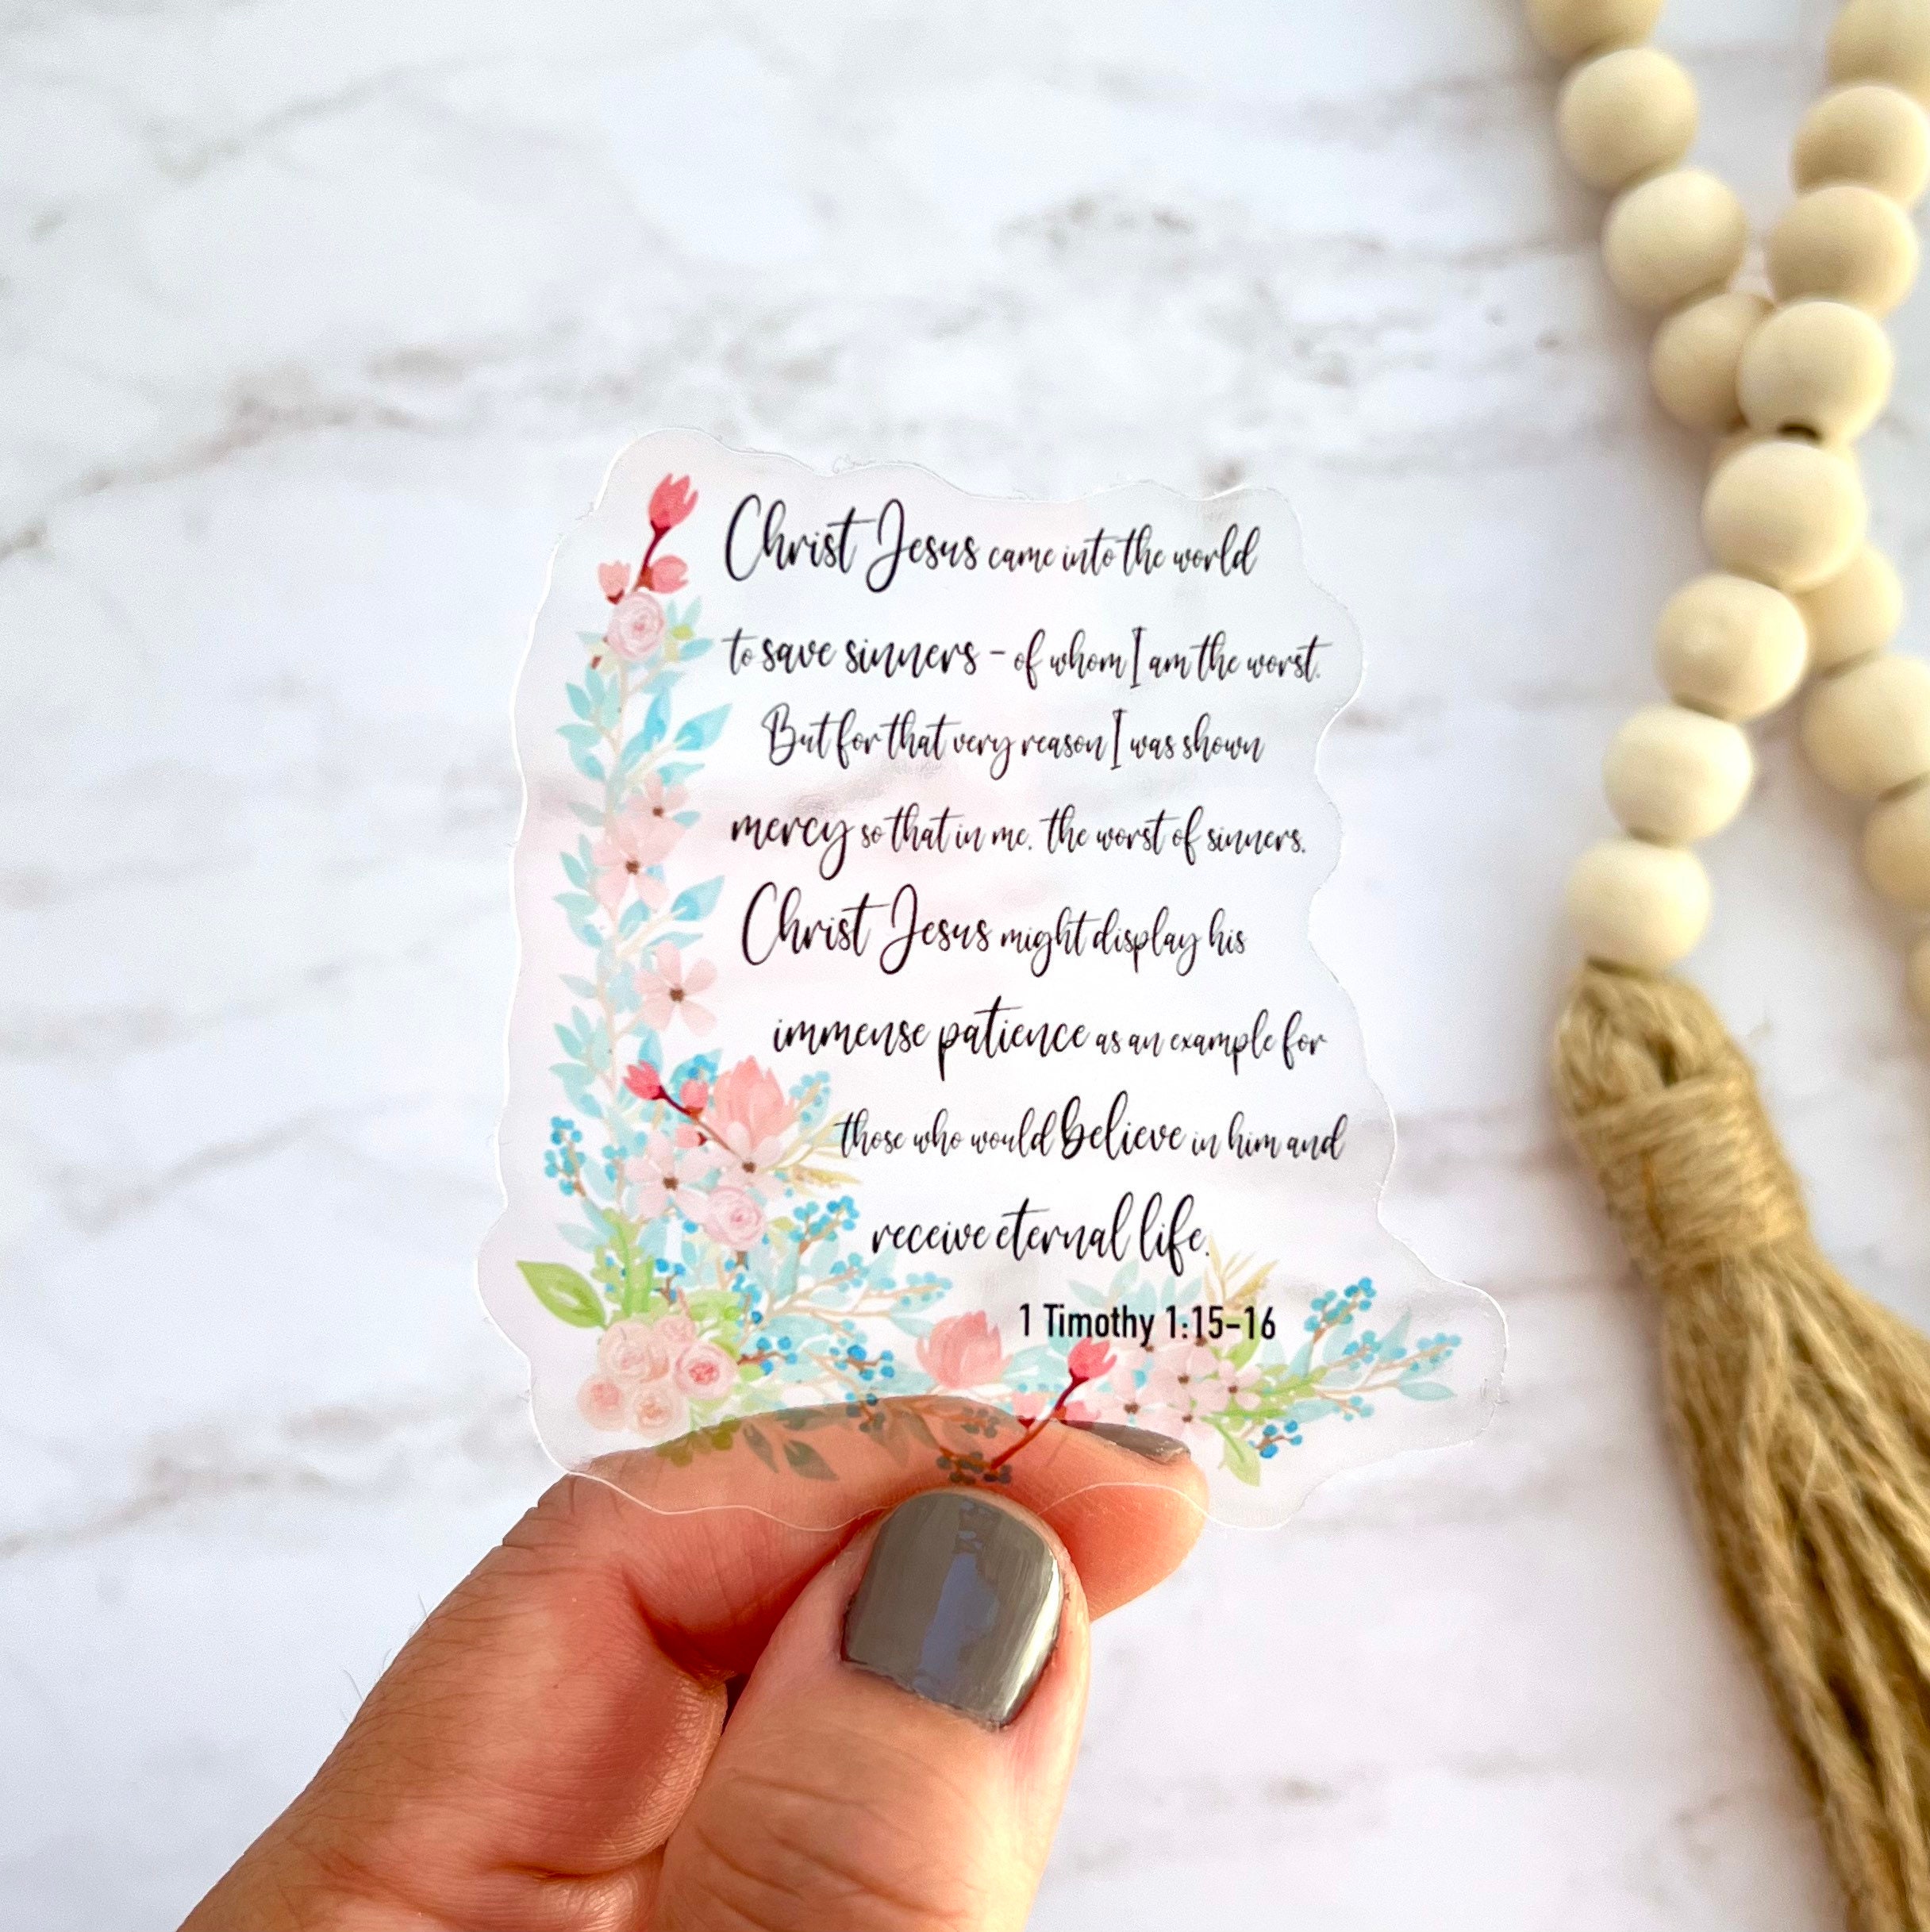 Christ Jesus came into the world
to save sinners - of whom I am the worst.
But for that very reason I was shown
mercy so that in me, the worst of sinners,
Christ Jesus might display his
immense patience as an example for
those who would believe in him and
receive eternal life.
1 Timothy 1:15-16